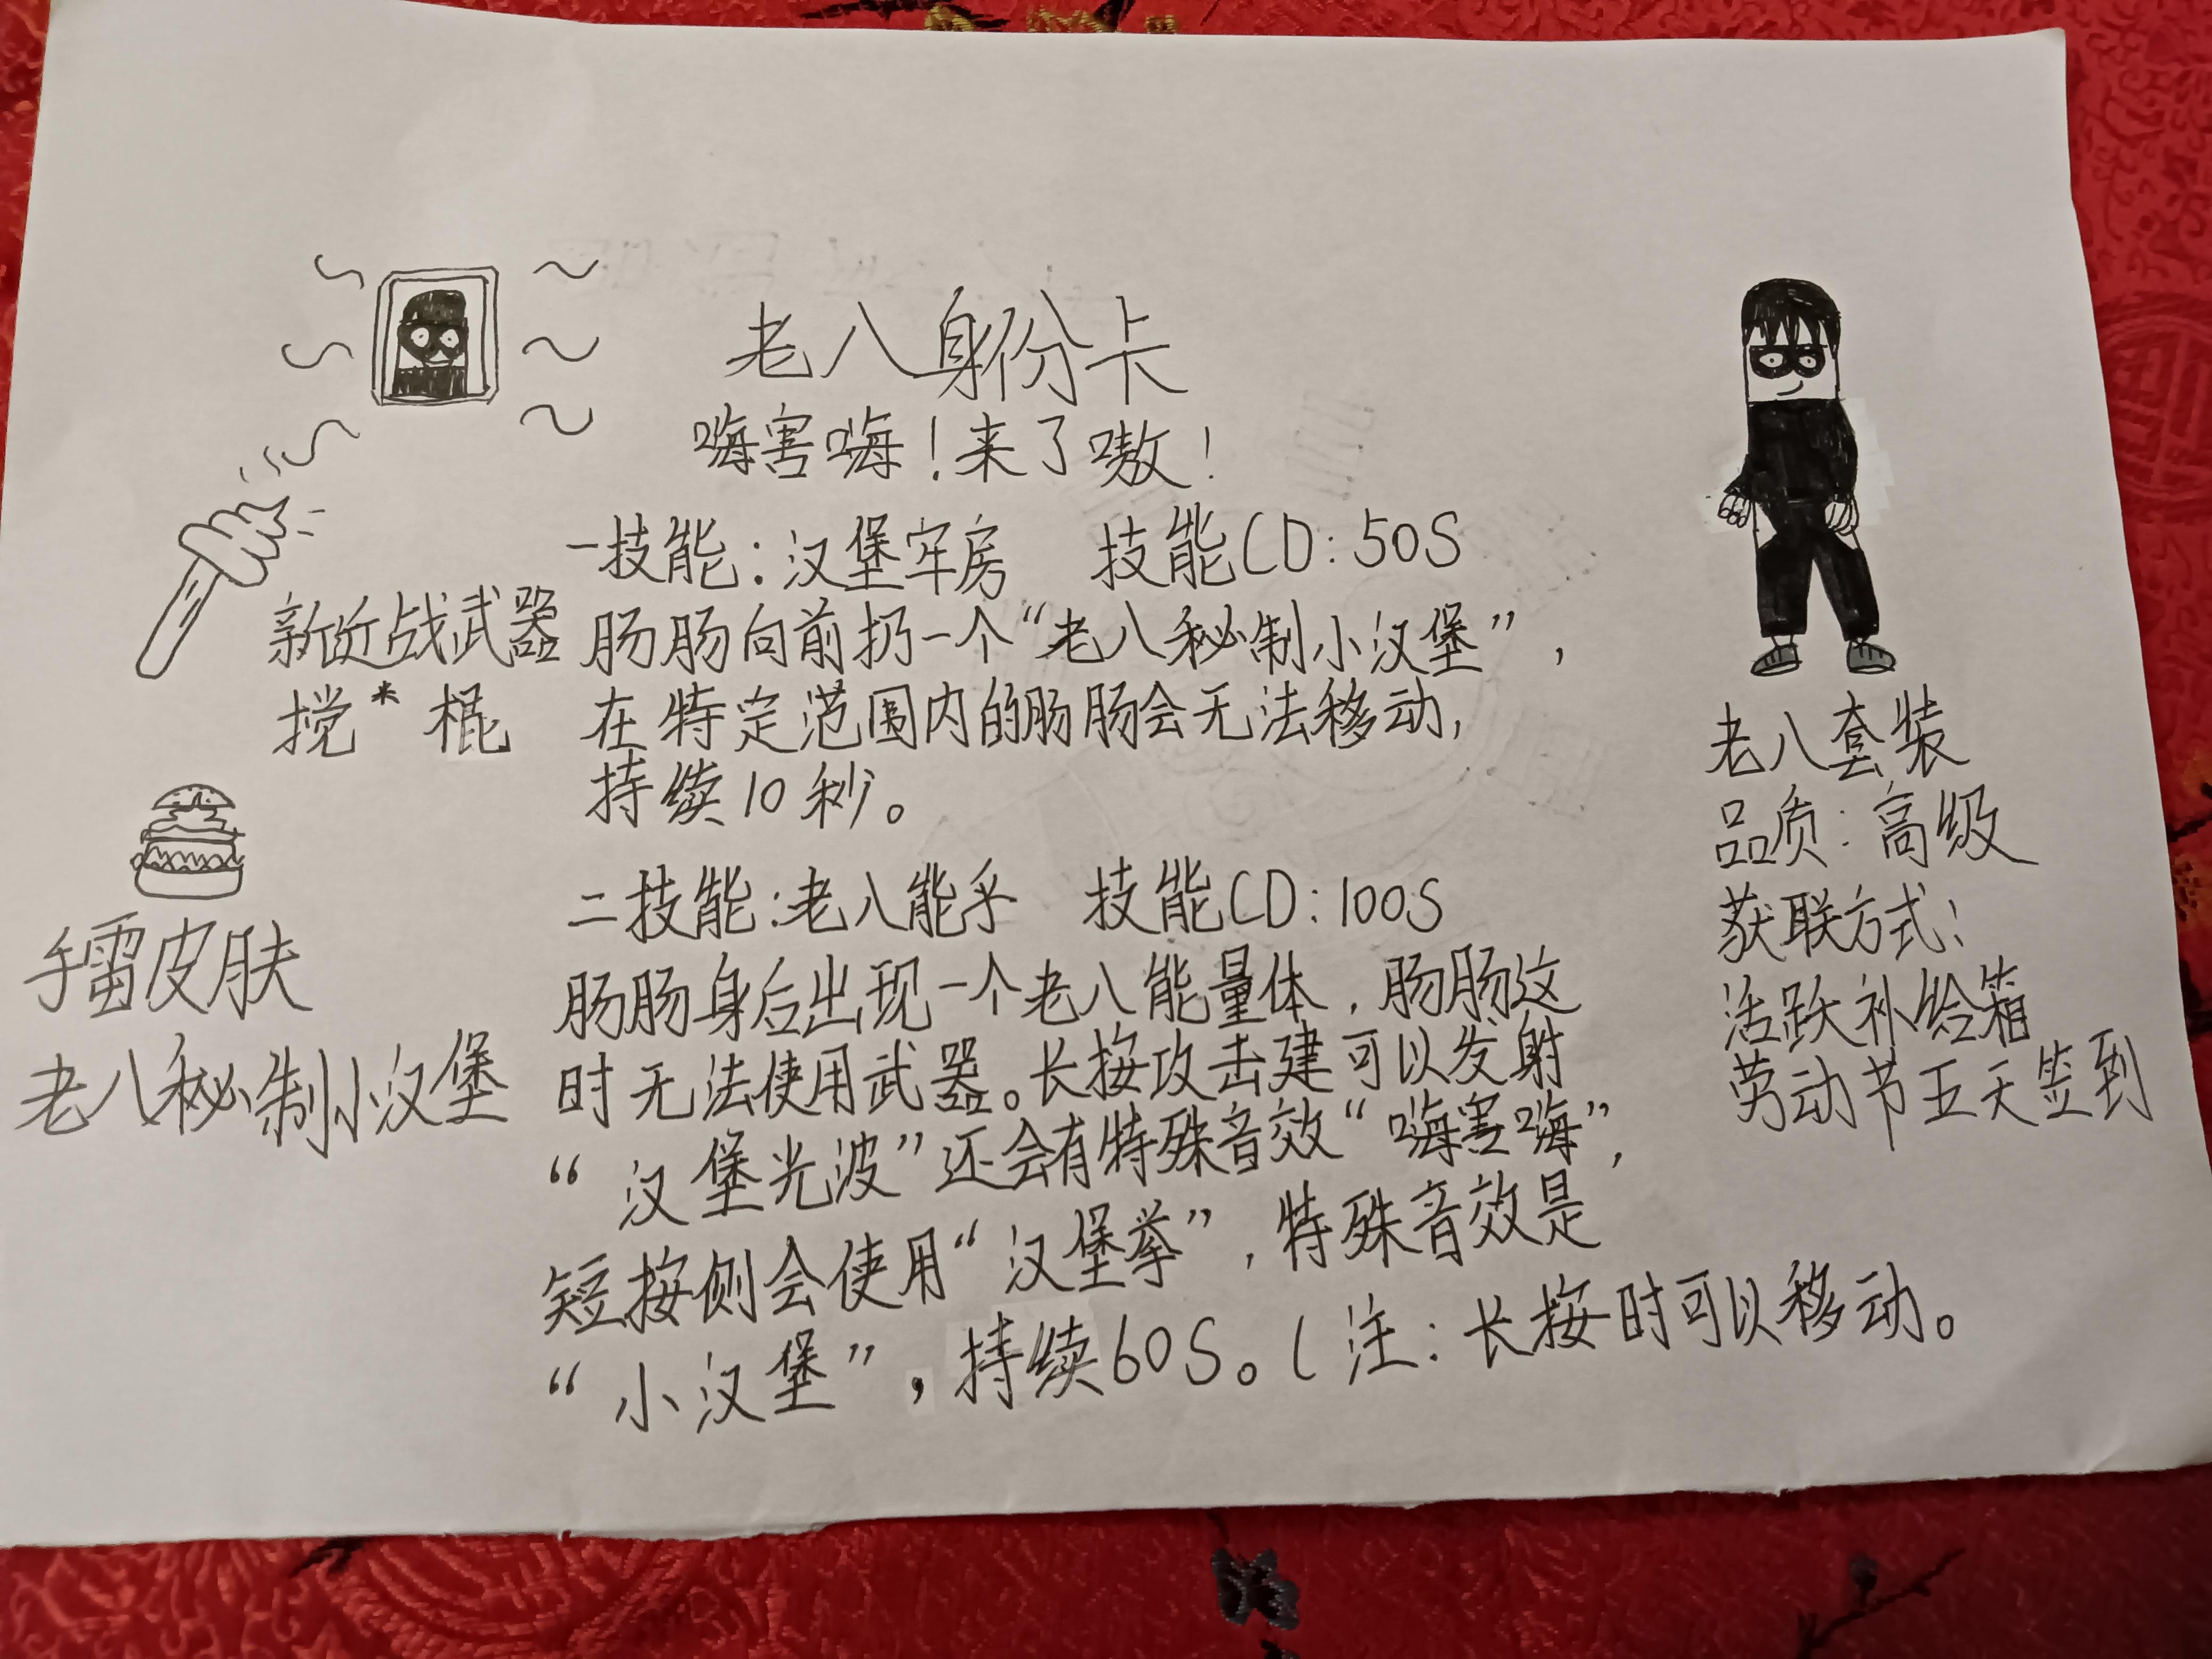 老八身份卡
嗨害嗨！来了嗷！
一技能：汉堡牢房 技能CD：50S
肠肠向前扔一个“老八秘制小汉堡”，
在特定范围内的肠肠会无法移动，
持续10秒。
二技能：老八能乎 技能CD：100S
肠肠身后出现一个老八能量体，肠肠这
时无法使用武器。长按攻击建可以发射
“汉堡光波”还会有特殊音效“嗨害嗨”，
短按侧会使用“汉堡拳”，特殊音效是
“小汉堡”，持续60S。（注：长按时可以移动。
新近战武器
搅*棍
手雷皮肤
老八秘制小汉堡
老八套装
品质：高级
获联方式：
活跃补给箱
劳动节五天签到